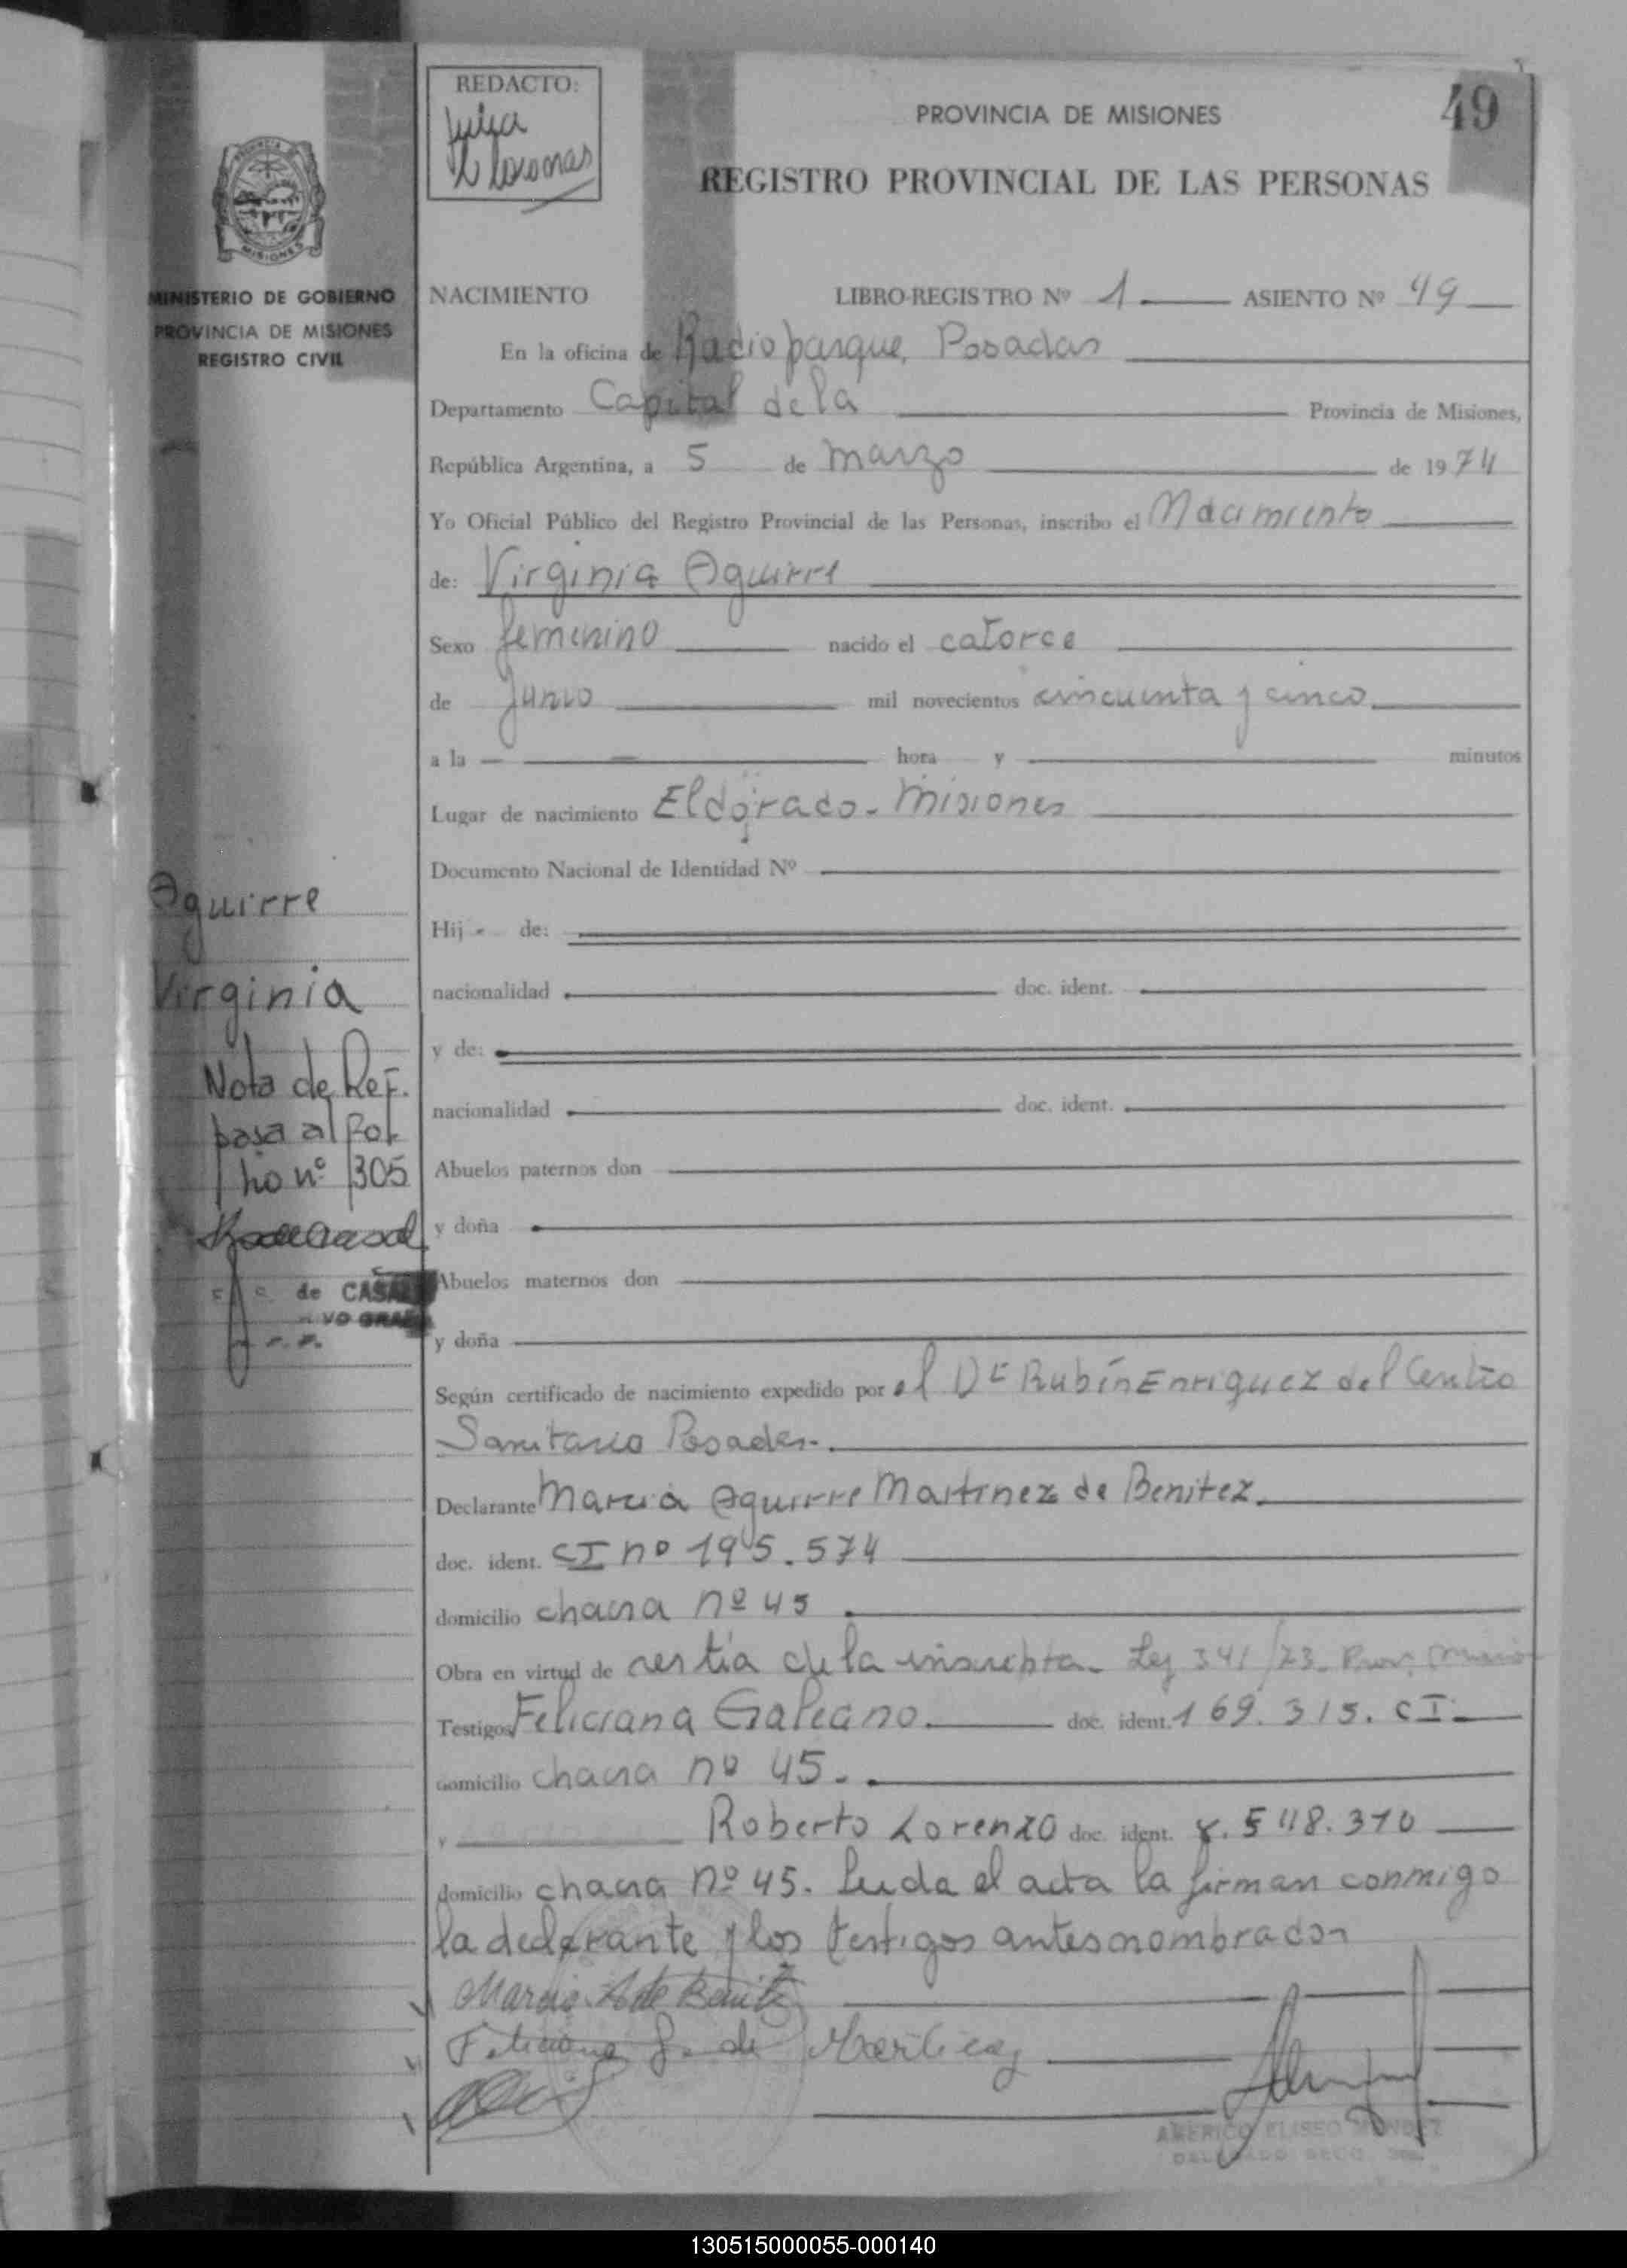 REDACTO:
PROVINCIA DE MISIONES
49
REGISTRO PROVINCIAL DE LAS PERSONAS
MISIONES
MINISTERIO DE GOBIERNO
PROVINCIA DE MISIONES
REGISTRO CIVIL
NACIMIENTO LIBRO-REGISTRO Nº 1 ASIENTO Nº 49
En la oficina de Radioparque, Posadas
Departamento Capital de la Provincia de Misiones,
República Argentina, a 5 de Marzo de 1974
Yo Oficial Público del Registro Provincial de las Personas, inscribo el Nacimiento
de: Virginia Aguirre
Sexo femenino nacido el catorce
de Junio mil novecientos cincuenta y cinco
a la — hora y minutos
Lugar de nacimiento Eldorado - Misiones
Documento Nacional de Identidad Nº
Hij - de:
nacionalidad doc. ident.
y de:
nacionalidad doc. ident.
Abuelos paternos don
y doña
Abuelos maternos don
y doña
Aguirre
Virginia
Nota de Ref.
pasa al Fol
ho nº 305
de CASAL
Según certificado de nacimiento expedido por el Dr Rubín Enriquez del Centro
Sanitario Posadas.
Declarante Marcia Aguirre Martinez de Benitez.
doc. ident. CI nº 195.574
domicilio chacra nº 45
Obra en virtud de de la inscripta. Ley 341/73.
Testigos Feliciana Galeano. doc. ident. 169.315. CI
domicilio chacra nº 45.
y Roberto Lorenzo doc. ident. 8.548.310
domicilio chacra nº 45. Leida el acta la firman conmigo
la declarante y los testigos antes nombrados
Marcia A de Benitez
Feliciana G. de
AMERICO ELISEO MENDEZ
130515000055-000140